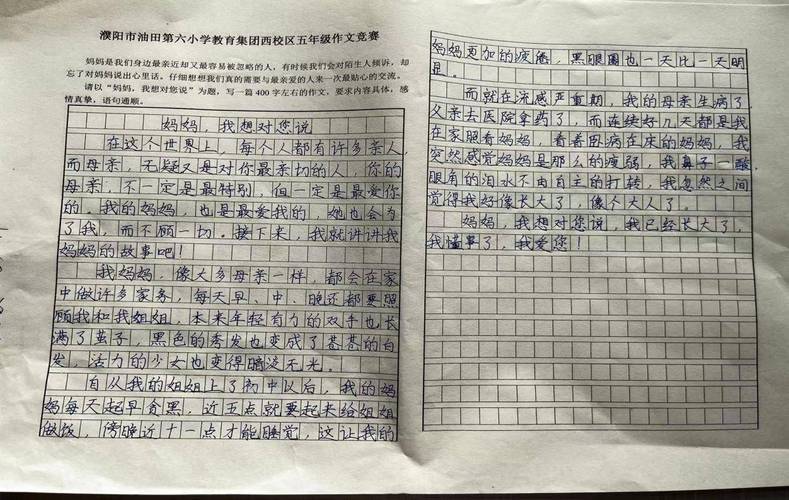 濮阳市油田第六小学教育集团西校区五年级作文竞赛
妈妈是我们身边最亲近却又最容易被忽略的人，有时候我们会对陌生人倾诉，却
忘了对妈妈说出心里话。仔细想想我们真的需要与最亲爱的人来一次最贴心的交流。
请以“妈妈，我想对您说”为题，写一篇 400 字左右的作文，要求内容具体，感
情真挚，语句通顺。
妈妈，我想对您说
在这个世界上，每个人都有许多亲人，
而母亲，无疑又是对你最亲切的人，你的
母亲，不一定是最特别，但一定是最爱你
的。我的妈妈，也是最爱我的，她也会为
了我，而不顾一切。接下来，我就讲讲我
妈妈的故事吧！
我妈妈，像大多母亲一样，都会在家
中做许多家务，每天早、中、晚还都要照
顾我和我姐姐，本来年轻有力的双手也长
满了茧子，黑色的秀发也变成了苍苍的白
发，活力的少女也变得暗淡无光。
自从我的姐姐上了初中以后，我的妈
妈每天起早贪黑，近五点就要起来给姐姐
做饭，傍晚近十一点才能睡觉，这让我的
妈妈更加的疲倦，黑眼圈也一天比一天明
显。
而就在流感严重期，我的母亲生病了，
父亲去医院拿药了，而连续好几天都是我
在家照看妈妈，看着卧病在床的妈妈，我
突然感觉妈妈是那么的瘦弱，我鼻子一酸，
眼角的泪水不由自主的打转，我忽然之间
觉得我好像长大了，像个大人了。
妈妈，我想对您说，我已经长大了，
我懂事了，我爱您！